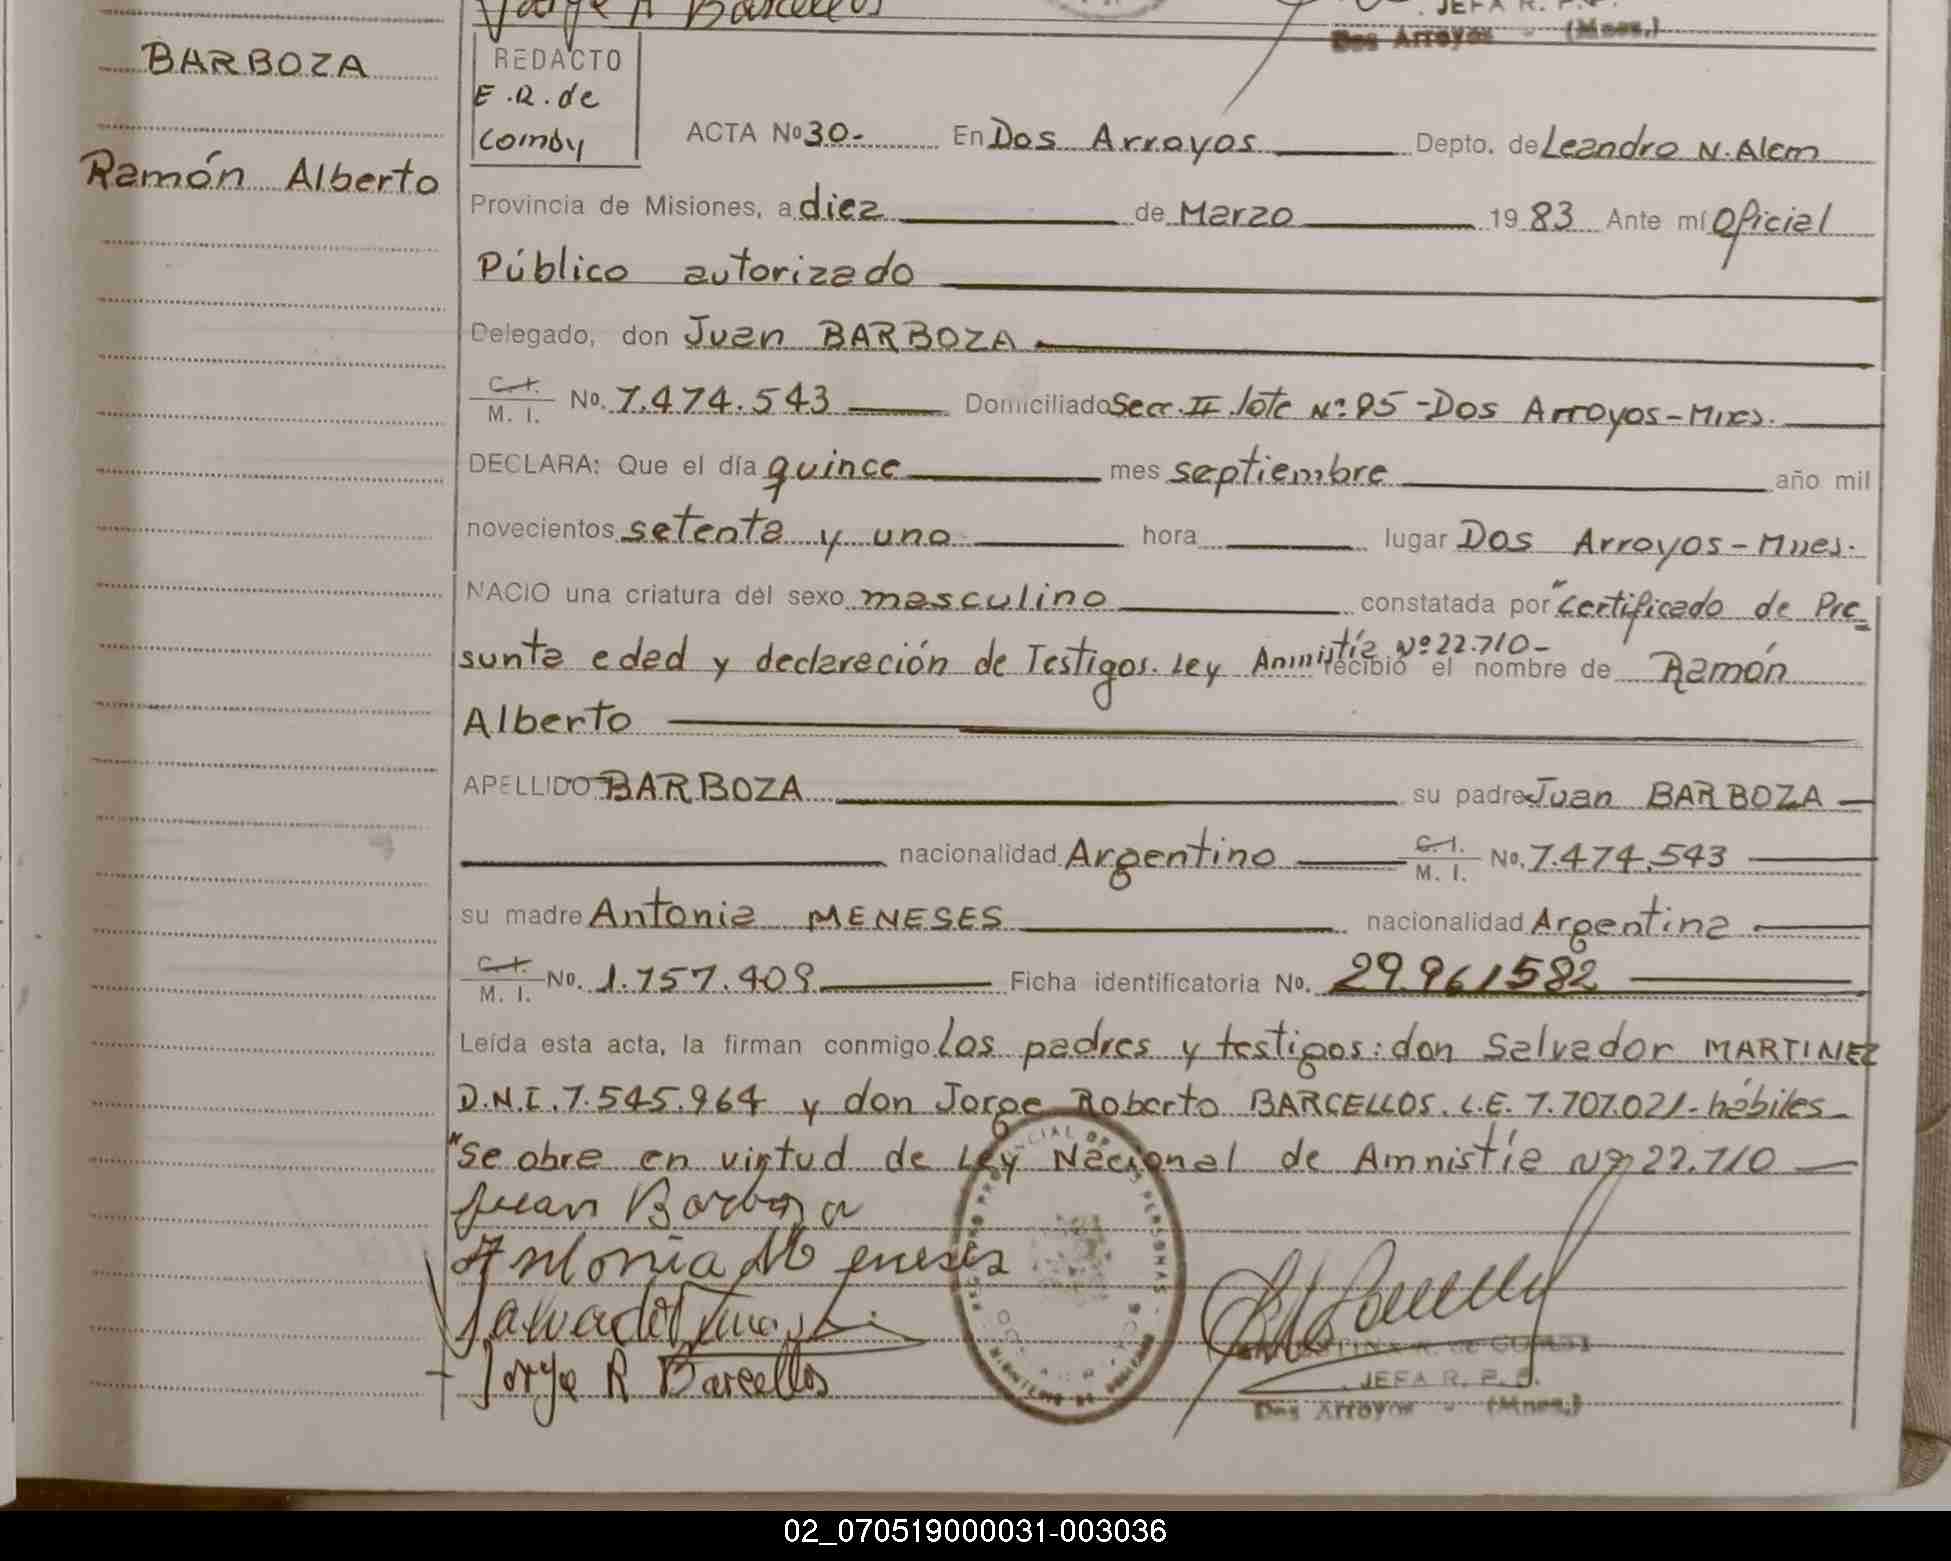 Jorge R Barcellos
JEFA R. P. P.
Dos Arroyos - (Mnes.)
BARBOZA
Ramón Alberto
REDACTO
E.R. de
ACTA Nº 30- En Dos Arroyos Depto. de Leandro N. Alem
Provincia de Misiones, a diez de Marzo 19 83 Ante mí Oficial
Público autorizado
Delegado, don Juan BARBOZA
C. I. M. I. No. 7.474.543 Domiciliado Secc. II lote Nº 95 - Dos Arroyos - Mnes.
DECLARA: Que el día quince mes septiembre año mil
novecientos setenta y uno hora lugar Dos Arroyos - Mnes.
NACIO una criatura del sexo masculino constatada por "Certificado de Pre
sunta edad y declaración de Testigos. Ley Amnistía Nº 22.710- recibió el nombre de Ramón
Alberto
APELLIDO BARBOZA su padre Juan BARBOZA
nacionalidad Argentino C. I. M. I. No. 7.474.543
su madre Antonia MENESES nacionalidad Argentina
C. I. M. I. No. 1.757.409 Ficha identificatoria No. 29.961582
Leída esta acta, la firman conmigo los padres y testigos: don Salvador MARTINEZ
D.N.I. 7.545.964 y don Jorge Roberto BARCELLOS. L.E. 7.707.021 - hábiles
"Se obra en virtud de Ley Nacional de Amnistía Nº 22.710
Juan Barboza
Antonia Meneses
Salvador
Jorge R Barcellos
JEFA R. P. P.
Dos Arroyos - (Mnes.)
02_070519000031-003036